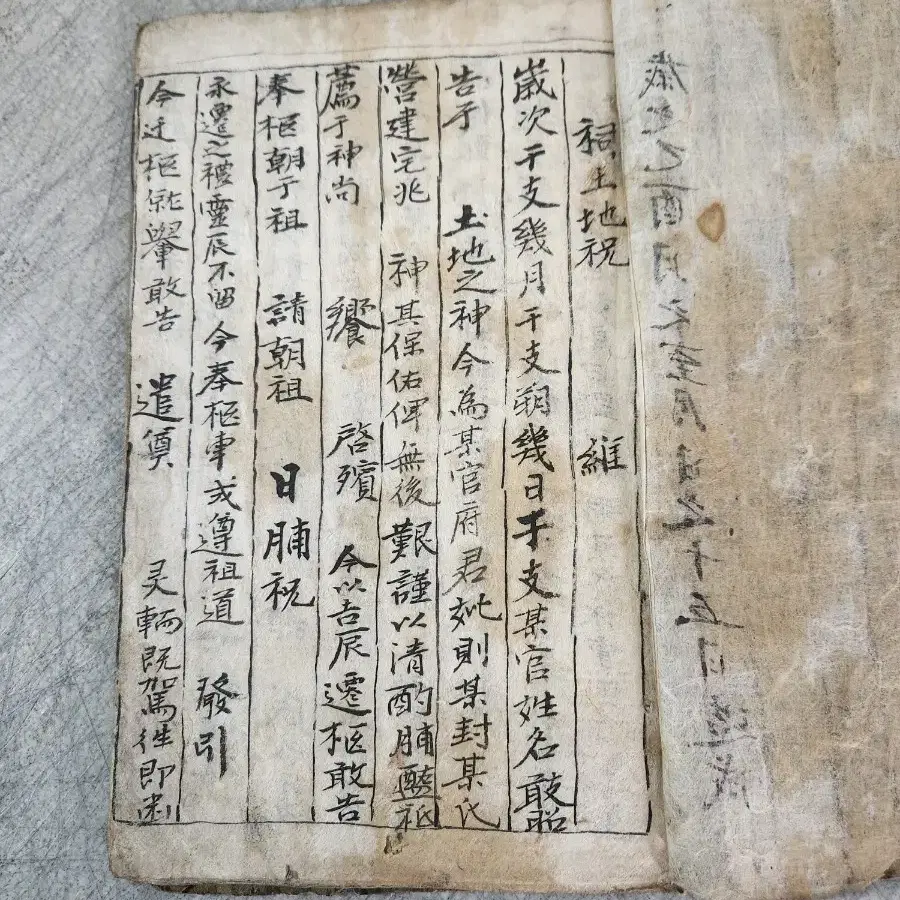 祠土地祝 維
歲次干支幾月干支朔幾日干支某官姓名敢昭
告于 土地之神今為某官府君妣則某封某氏
營建宅兆 神其保佑俾無後艱謹以清酌脯醢祗
薦于神尚 饗 啓殯 今以吉辰遷柩敢告
奉柩朝于祖 請朝祖 日脯祝
永遷之禮靈辰不留今奉柩車式遵祖道 發引
今迁柩就轝敢告 遣奠 灵輀既駕徃即幽